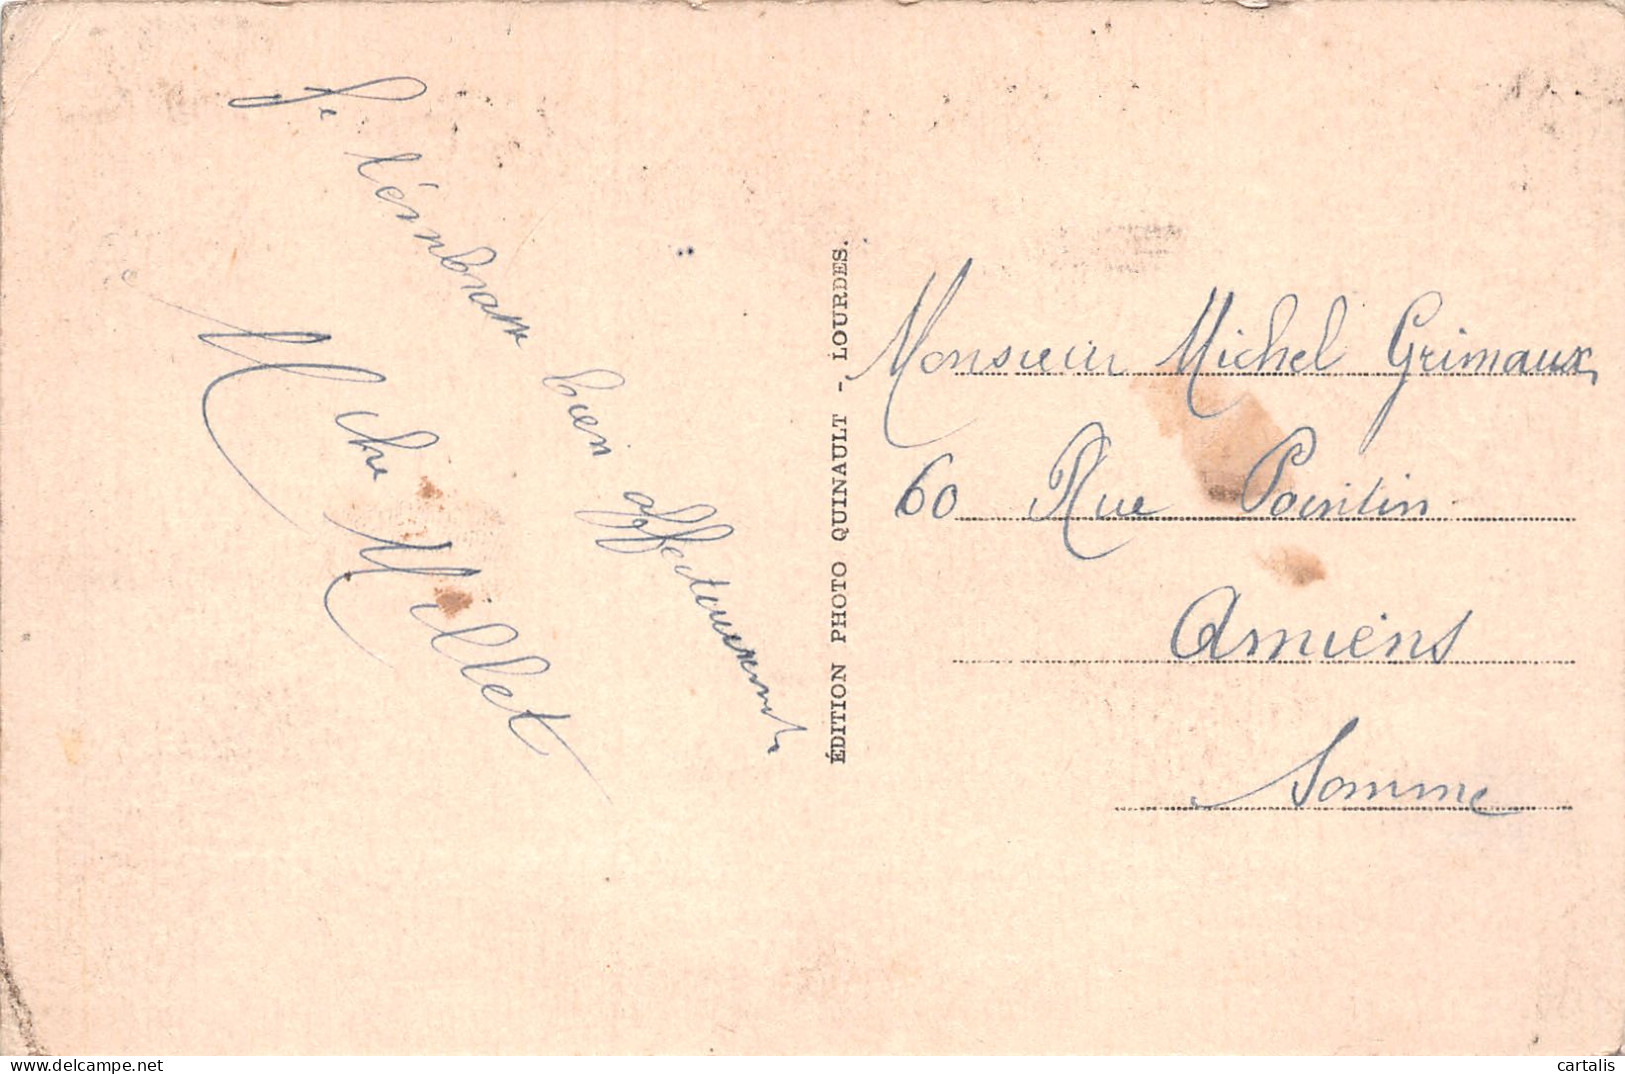 Je t'émbrasse
bien affectueusement
Mche Millet
ÉDITION PHOTO QUINAULT - LOURDES.
Monsieur Michel Grimaux
60 Rue Pointin
Amiens
Somme
delcampe.net
cartalis